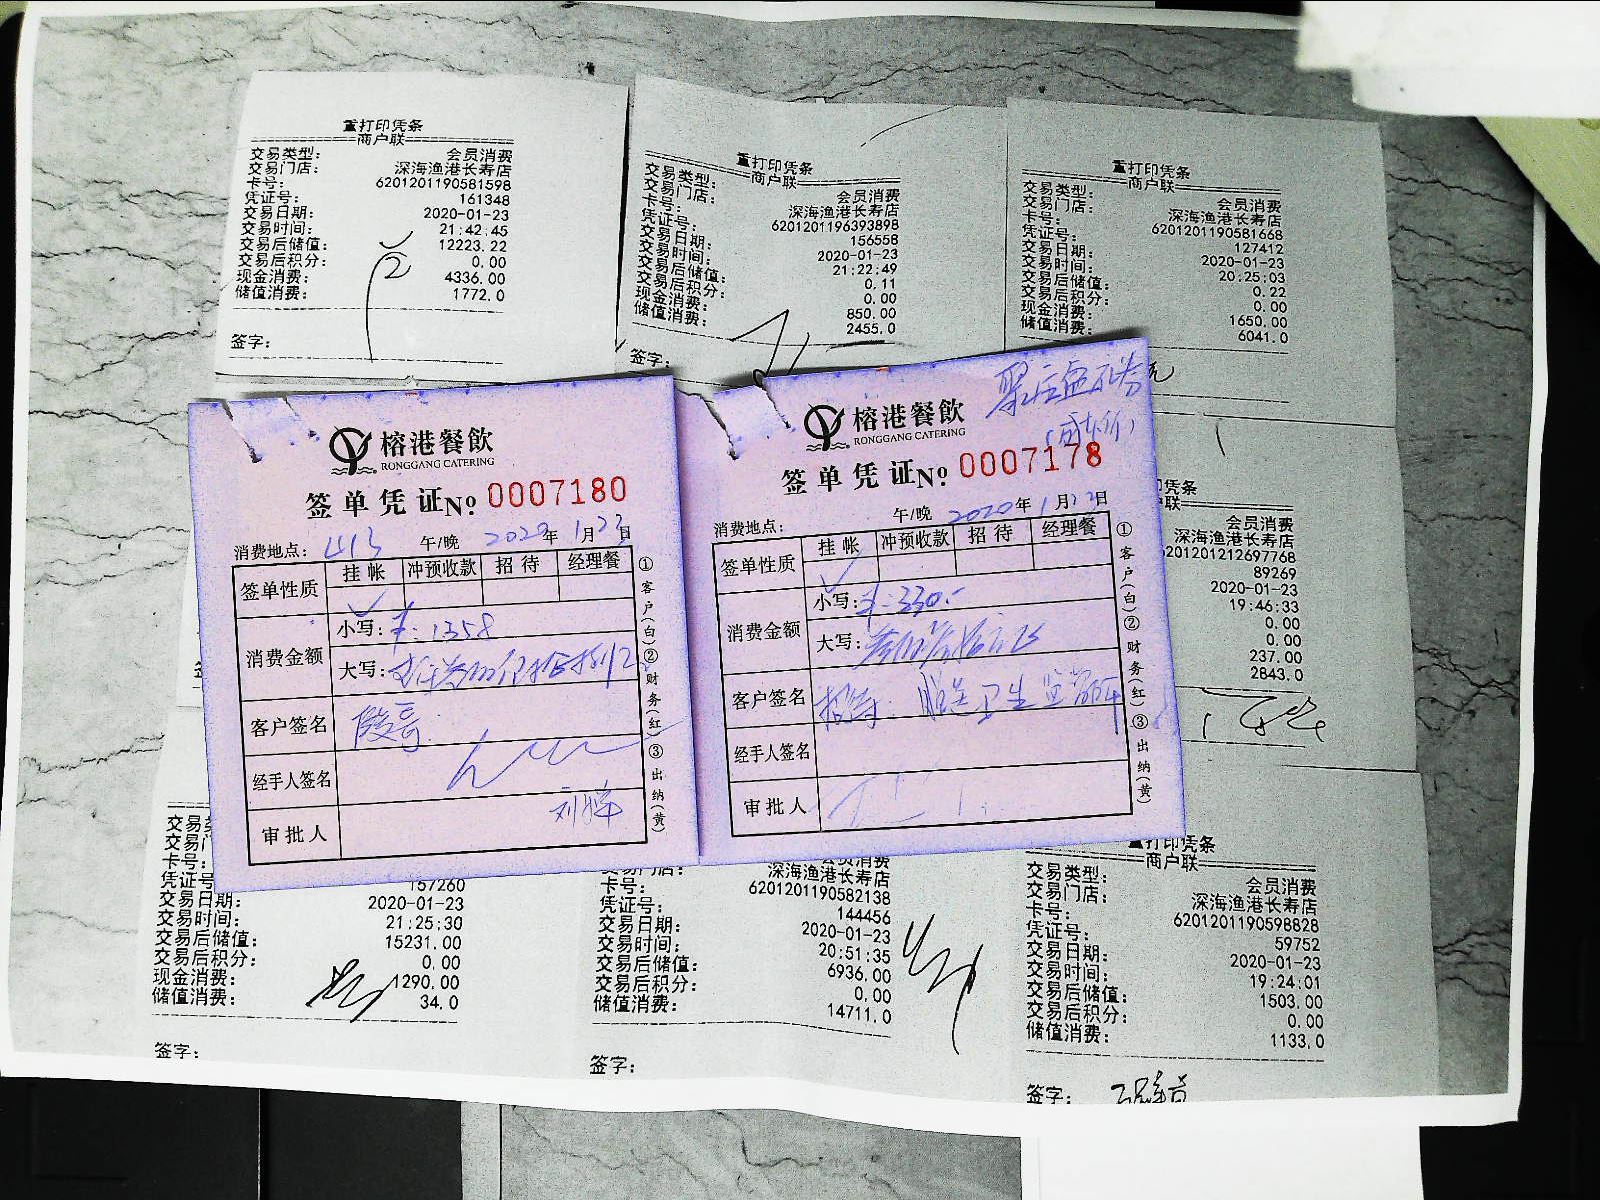 重打印凭条
商户联
交易类型: 会员消费
交易门店: 深海渔港长寿店
卡号: 6201201190581598
凭证号: 161348
交易日期: 2020-01-23
交易时间: 21:42:45
交易后储值: 12223.22
交易后积分: 0.00
现金消费: 4336.00
储值消费: 1772.0
签字:
重打印凭条
商户联
交易类型: 会员消费
交易门店: 深海渔港长寿店
卡号: 6201201196393898
凭证号: 156558
交易日期: 2020-01-23
交易时间: 21:22:49
交易后储值: 0.11
交易后积分: 0.00
现金消费: 850.00
储值消费: 2455.0
签字:
重打印凭条
商户联
交易类型: 会员消费
交易门店: 深海渔港长寿店
卡号: 6201201190581668
凭证号: 127412
交易日期: 2020-01-23
交易时间: 20:25:03
交易后储值: 0.22
交易后积分: 0.00
现金消费: 1650.00
储值消费: 6041.0
榕港餐飲
RONGGANG CATERING
签单凭证No 0007180
消费地点: 413 午/晚 2020年1月23日
签单性质 挂帐 冲预收款 招待 经理餐
消费金额 小写: ¥:1358
大写:
客户签名
经手人签名
审批人
①客户(白)②财务(红)③出纳(黄)
榕港餐飲
RONGGANG CATERING
签单凭证No 0007178
消费地点: 午/晚 2020年1月22日
签单性质 挂帐 冲预收款 招待 经理餐
消费金额 小写: ¥:330.-
大写:
客户签名 招待
经手人签名
审批人
①客户(白)②财务(红)③出纳(黄)
凭条
联
会员消费
深海渔港长寿店
201201212697768
89269
2020-01-23
19:46:33
0.00
0.00
237.00
2843.0
卡号:
凭证号 157260
交易日期: 2020-01-23
交易时间: 21:25:30
交易后储值: 15231.00
交易后积分: 0.00
现金消费: 1290.00
储值消费: 34.0
签字:
会员消费
深海渔港长寿店
卡号: 6201201190582138
凭证号: 144456
交易日期: 2020-01-23
交易时间: 20:51:35
交易后储值: 6936.00
交易后积分: 0.00
储值消费: 14711.0
签字:
重打印凭条
商户联
交易类型: 会员消费
交易门店: 深海渔港长寿店
卡号: 6201201190598828
凭证号: 59752
交易日期: 2020-01-23
交易时间: 19:24:01
交易后储值: 1503.00
交易后积分: 0.00
储值消费: 1133.0
签字: